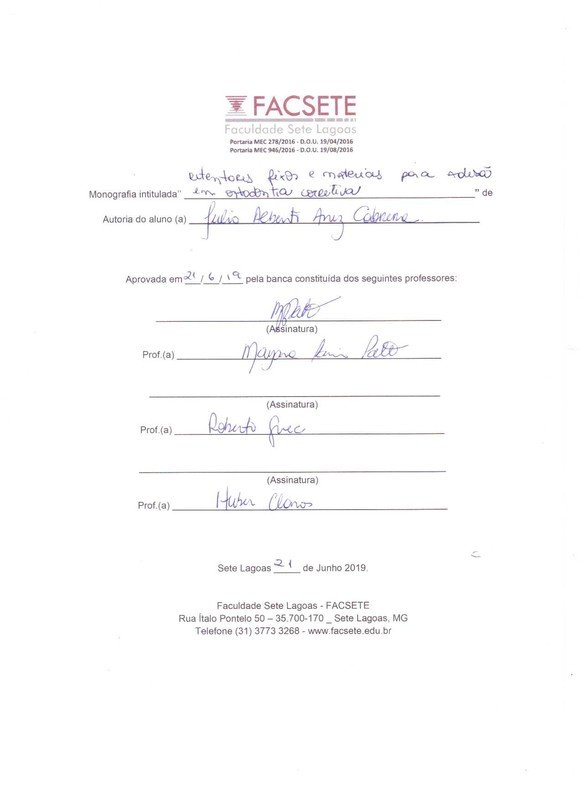 FACSETE
Faculdade Sete Lagoas
Portaria MEC 278/2016 - D.O.U. 19/04/2016
Portaria MEC 946/2016 - D.O.U. 19/08/2016
fixos e materiais para
Monografia intitulada" em ortodontia corretiva " de
Autoria do aluno (a) Julio Alberto Cabrera
Aprovada em 21 / 6 / 19 pela banca constituída dos seguintes professores:
(Assinatura)
Prof.(a) Pato
(Assinatura)
Prof.(a) Roberto
(Assinatura)
Prof.(a) Huber Claros
Sete Lagoas 21 de Junho 2019.
Faculdade Sete Lagoas - FACSETE
Rua Ítalo Pontelo 50 – 35.700-170 _ Sete Lagoas, MG
Telefone (31) 3773 3268 - www.facsete.edu.br